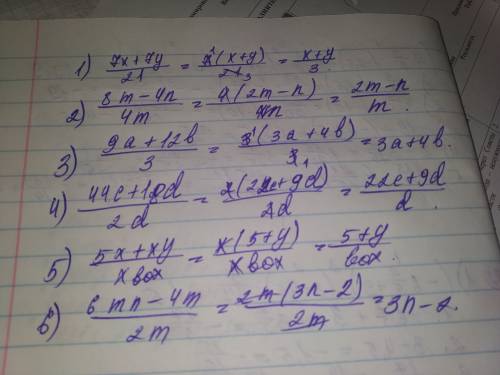 1) (7x+7y)/21 = 7(x+y)/21 3 = (x+y)/3.
2) (8m-4n)/4m = 4(2m-n)/4m = (2m-n)/m.
3) (9a+12b)/3 = 3(3a+4b)/3 1 = 3a+4b.
4) (44c+18d)/2d = 2(22c+9d)/2d = (22c+9d)/d.
5) (5x+xy)/xbox = x(5+y)/xbox = (5+y)/box.
6) (6mn-4m)/2m = 2m(3n-2)/2m = 3n-2.